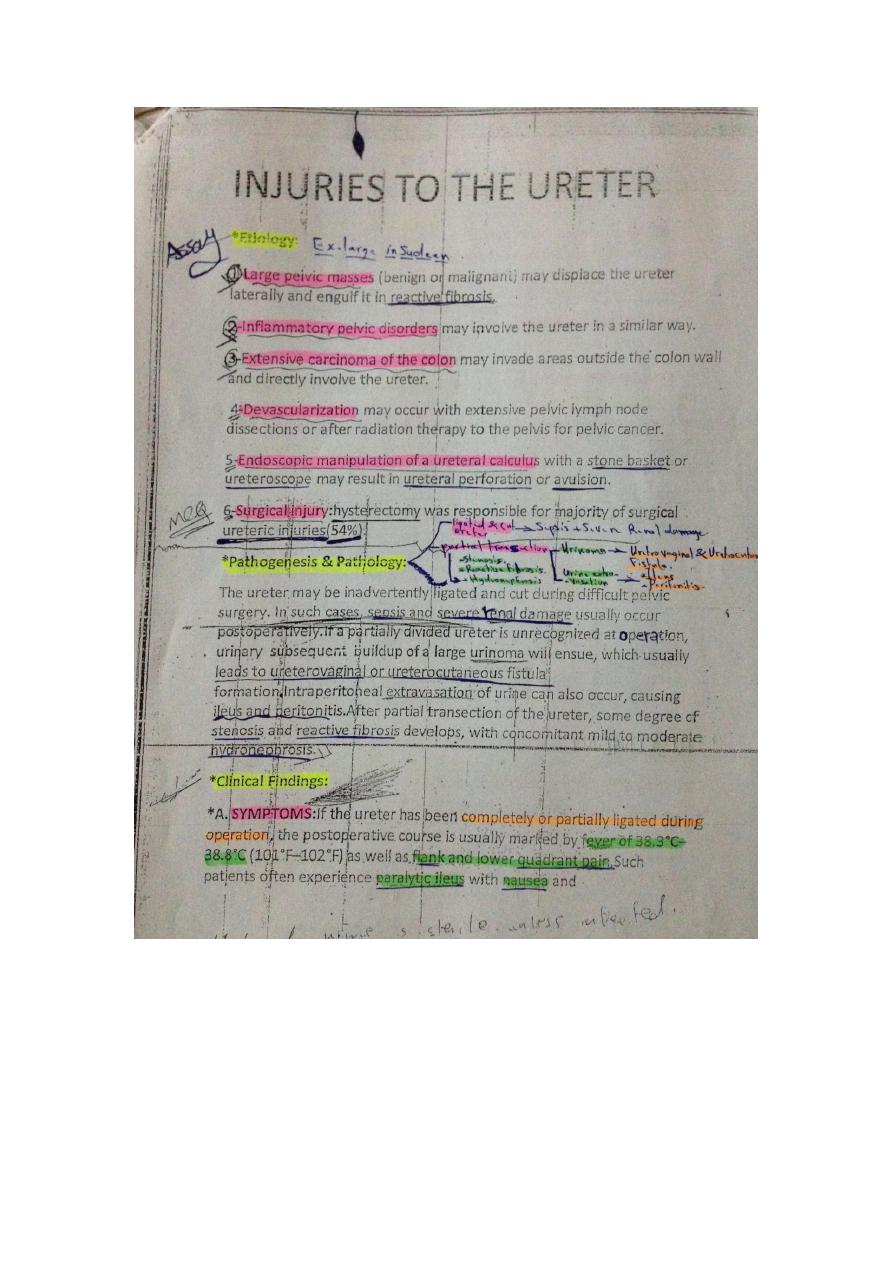 INJURIES TO THE URETER
Assay
*Etiology: Ex.large in Sudeen.
1-Large pelvic masses (benign or malignant) may displace the ureter
laterally and engulf it in reactive fibrosis.
2-Inflammatory pelvic disorders may involve the ureter in a similar way.
3-Extensive carcinoma of the colon may invade areas outside the colon wall
and directly involve the ureter.
4-Devascularization may occur with extensive pelvic lymph node
dissections or after radiation therapy to the pelvis for pelvic cancer.
5-Endoscopic manipulation of a ureteral calculus with a stone basket or
ureteroscope may result in ureteral perforation or avulsion.
6-Surgical injury:hysterectomy was responsible for majority of surgical
MCQ
ureteric injuries(54%)
ligated & cut → Sepsis + Seven Renal damage
ureter
partial transaction → Urinoma → Uretrovaginal &
Fistula.
-Stenosis.
-Reactive Fibrosis.
-Hydronphrosis
Urine extra-
-vasation → -Ileus
-Peritonitis.
*Pathogenesis & Pathology:
The ureter may be inadvertently ligated and cut during difficult pelvic
surgery. In such cases, sepsis and severe renal damage usually occur
postoperatively.If a partially divided ureter is unrecognized at operation,
urinary subsequent buildup of a large urinoma will ensue, which usually
leads to ureterovaginal or ureterocutaneous fistula
formation.Intraperitoneal extravasation of urine can also occur, causing
ileus and peritonitis.After partial transection of the ureter, some degree of
stenosis and reactive fibrosis develops, with concomitant mild to moderate
hydronephrosis.
*Clinical Findings:
*A. SYMPTOMS:If the ureter has been completely or partially ligated during
operation, the postoperative course is usually marked by fever of 38.3°C–
38.8°C (101°F–102°F) as well as flank and lower quadrant pain.Such
patients often experience paralytic ileus with nausea and
urine is sterile unless infected.